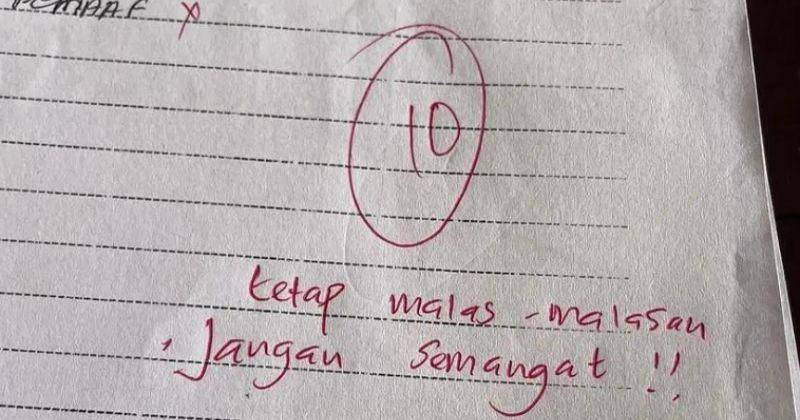 PEMAAF x
10
ketap malas-malasan
, Jangan Semangat !!